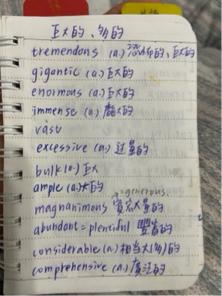 巨大的、多的
tremendons (a.) 巨大的
gigantic (a.) 巨大的
enormous (a.) 巨大的
immense (a.) 龐大的
vast
excessive (a.) 过量的
bulk (n.) 巨大
ample (a.) 大的
=generous
magnanimous 寬宏大量的
abundant = plentiful 豐富的
considerable (a.) 相当大(多)的
comprehensive (a.) 廣泛的